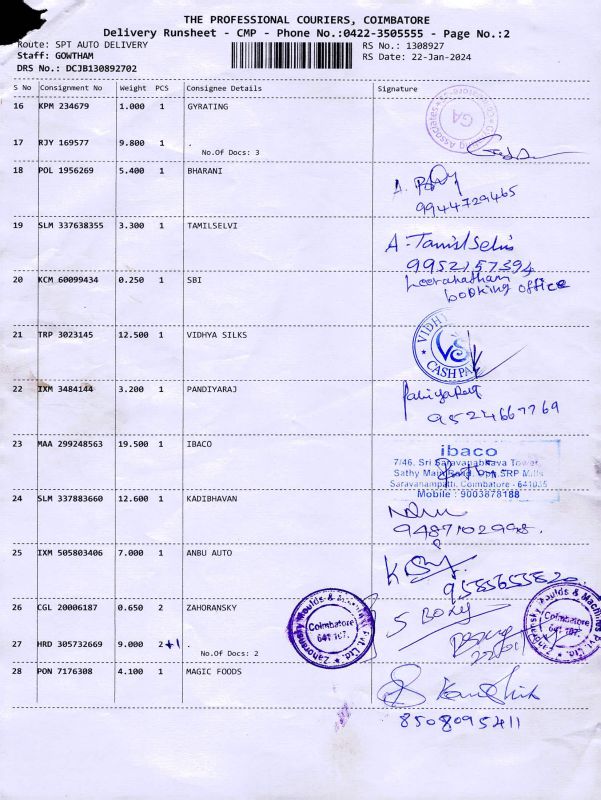 THE PROFESSIONAL COURIERS, COIMBATORE
Delivery Runsheet - CMP - Phone No.:0422-3505555 - Page No.:2
Route: SPT AUTO DELIVERY
RS No.: 1308927
Staff: GOWTHAM
RS Date: 22-Jan-2024
DRS No.: DCJB130892702
S No Consignment No Weight PCS Consignee Details Signature
16 KPM 234679 1.000 1 GYRATING
GA
17 RJY 169577 9.800 1 .
No.Of Docs: 3
18 POL 1956269 5.400 1 BHARANI
9944729465
19 SLM 337638355 3.300 1 TAMILSELVI
A. Tamil Selvi
9952157394
20 KCM 60099434 0.250 1 SBI
booking office
21 TRP 3023145 12.500 1 VIDHYA SILKS
VIDH
VS
CASH PA
22 IXM 3484144 3.200 1 PANDIYARAJ
9524667769
23 MAA 299248563 19.500 1 IBACO
ibaco
7/46, Sri Saravanabhava Tower,
Sathy Main Road, Opp. SRP Mills
Saravanampatti, Coimbatore - 641035
Mobile : 9003878188
24 SLM 337883660 12.600 1 KADIBHAVAN
9487102998.
25 IXM 505803406 7.000 1 ANBU AUTO
9585655820
26 CGL 20006187 0.650 2 ZAHORANSKY
Zahoransky Moulds & Machines Pvt. Ltd.
Coimbatore
641 107.
Zahoransky Moulds & Machines Pvt. Ltd.
Coimbatore
641 107.
27 HRD 305732669 9.000 2+1 .
No.Of Docs: 2
28 PON 7176308 4.100 1 MAGIC FOODS
8508095411